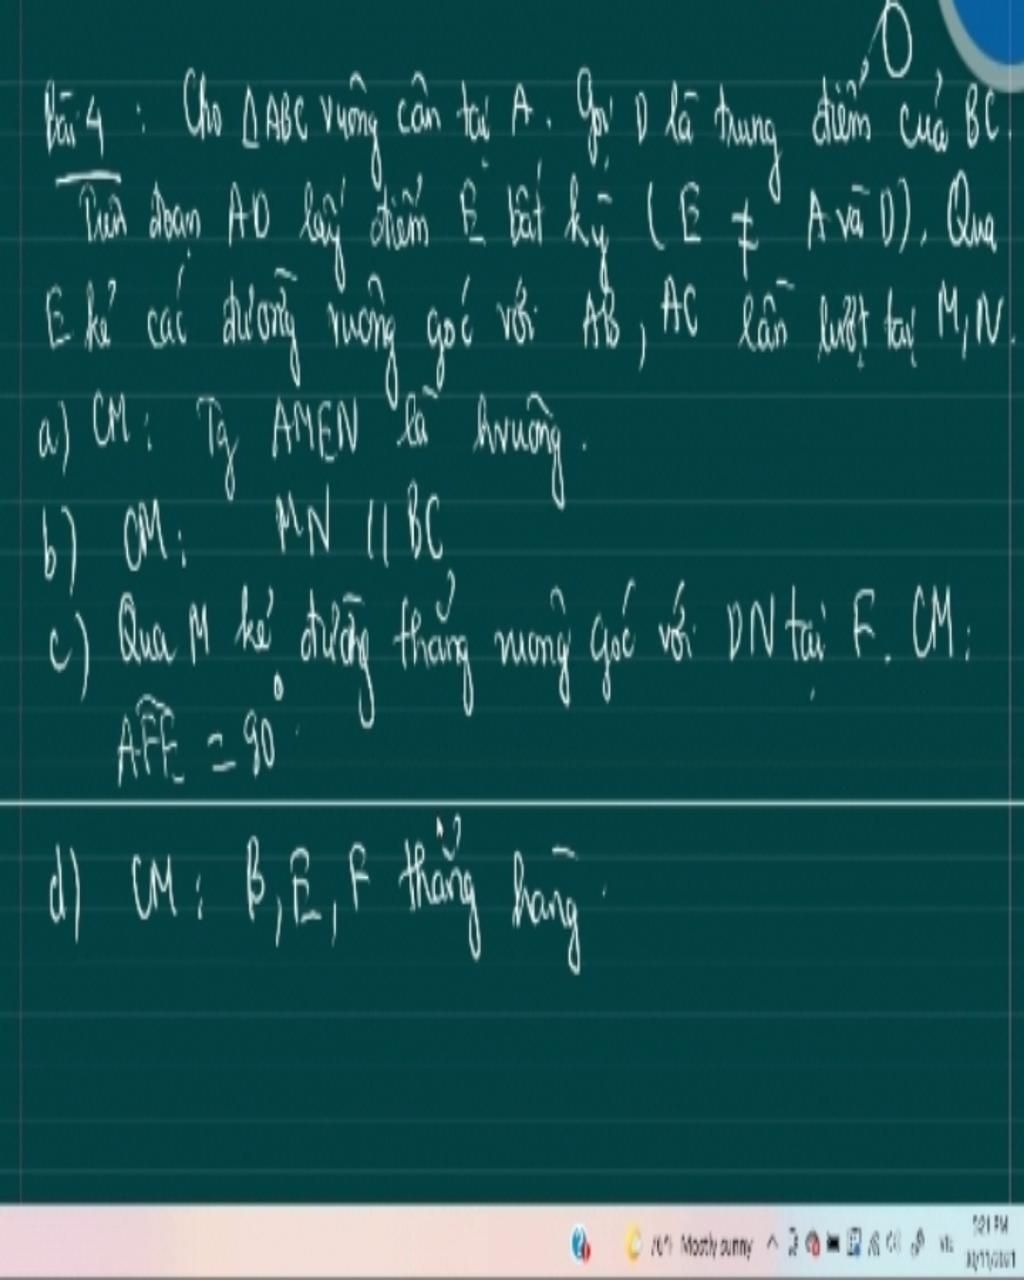 Bài 4 : Cho ΔABC vuông cân tại A. Gọi D là trung điểm của BC.
Trên đoạn AD lấy điểm E bất kỳ ( E ≠ A và D). Qua
E kẻ các đường vuông góc với AB, AC lần lượt tại M, N.
a) CM : Tg AMEN là hvuông.
b) CM : MN // BC
c) Qua M kẻ đường thẳng vuông góc với DN tại F. CM :
AFE = 90°
d) CM : B, E, F thẳng hàng.
Mostly sunny
5:21 PM